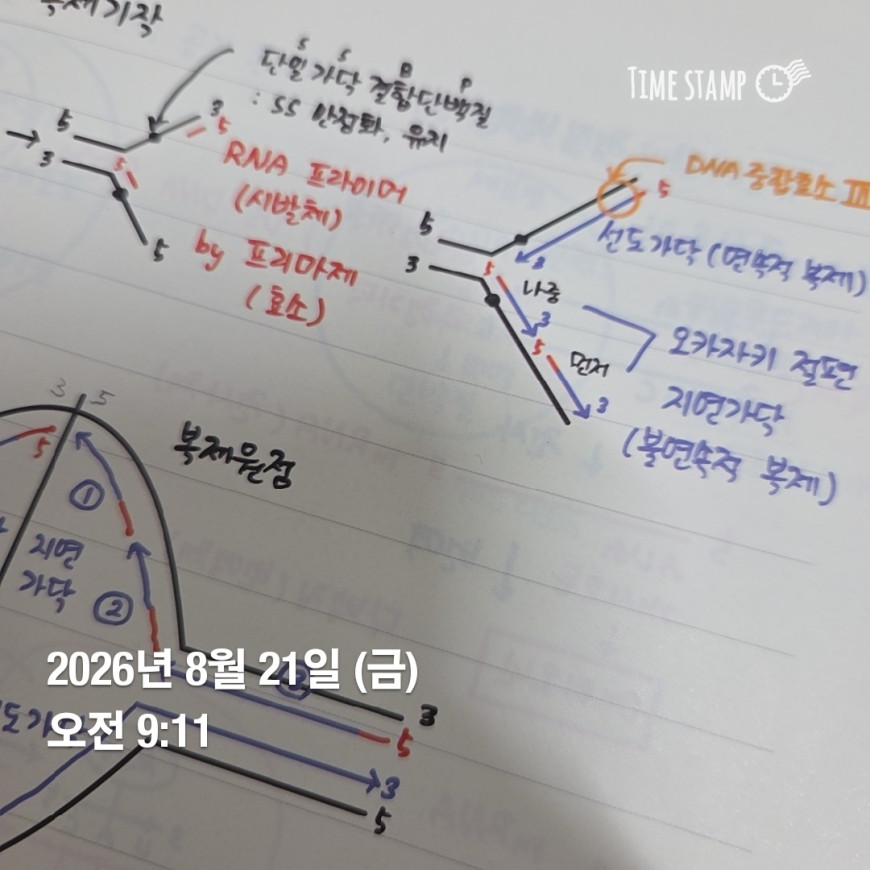 복제기작
S S B P
단일가닥 결합단백질
: SS 안정화, 유지
TIME STAMP
5
3
5
3
5
5
RNA 프라이머
(시발체)
by 프리마제
(효소)
DNA 중합효소 III
5
5
3
3
선도가닥 (연속적 복제)
5
나중
3
5
먼저
3
오카자키 절편
지연가닥
(불연속적 복제)
3 5
5
복제원점
①
지연
가닥
②
2026년 8월 21일 (금)
오전 9:11
3
5
3
5